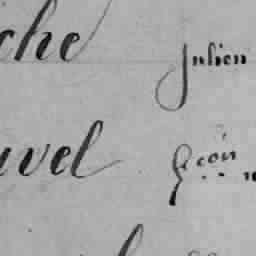 che Julien
uvel Léon